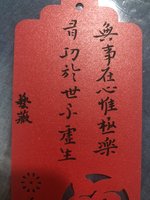 無事在心惟極樂
有功於世不虛生
藝薇